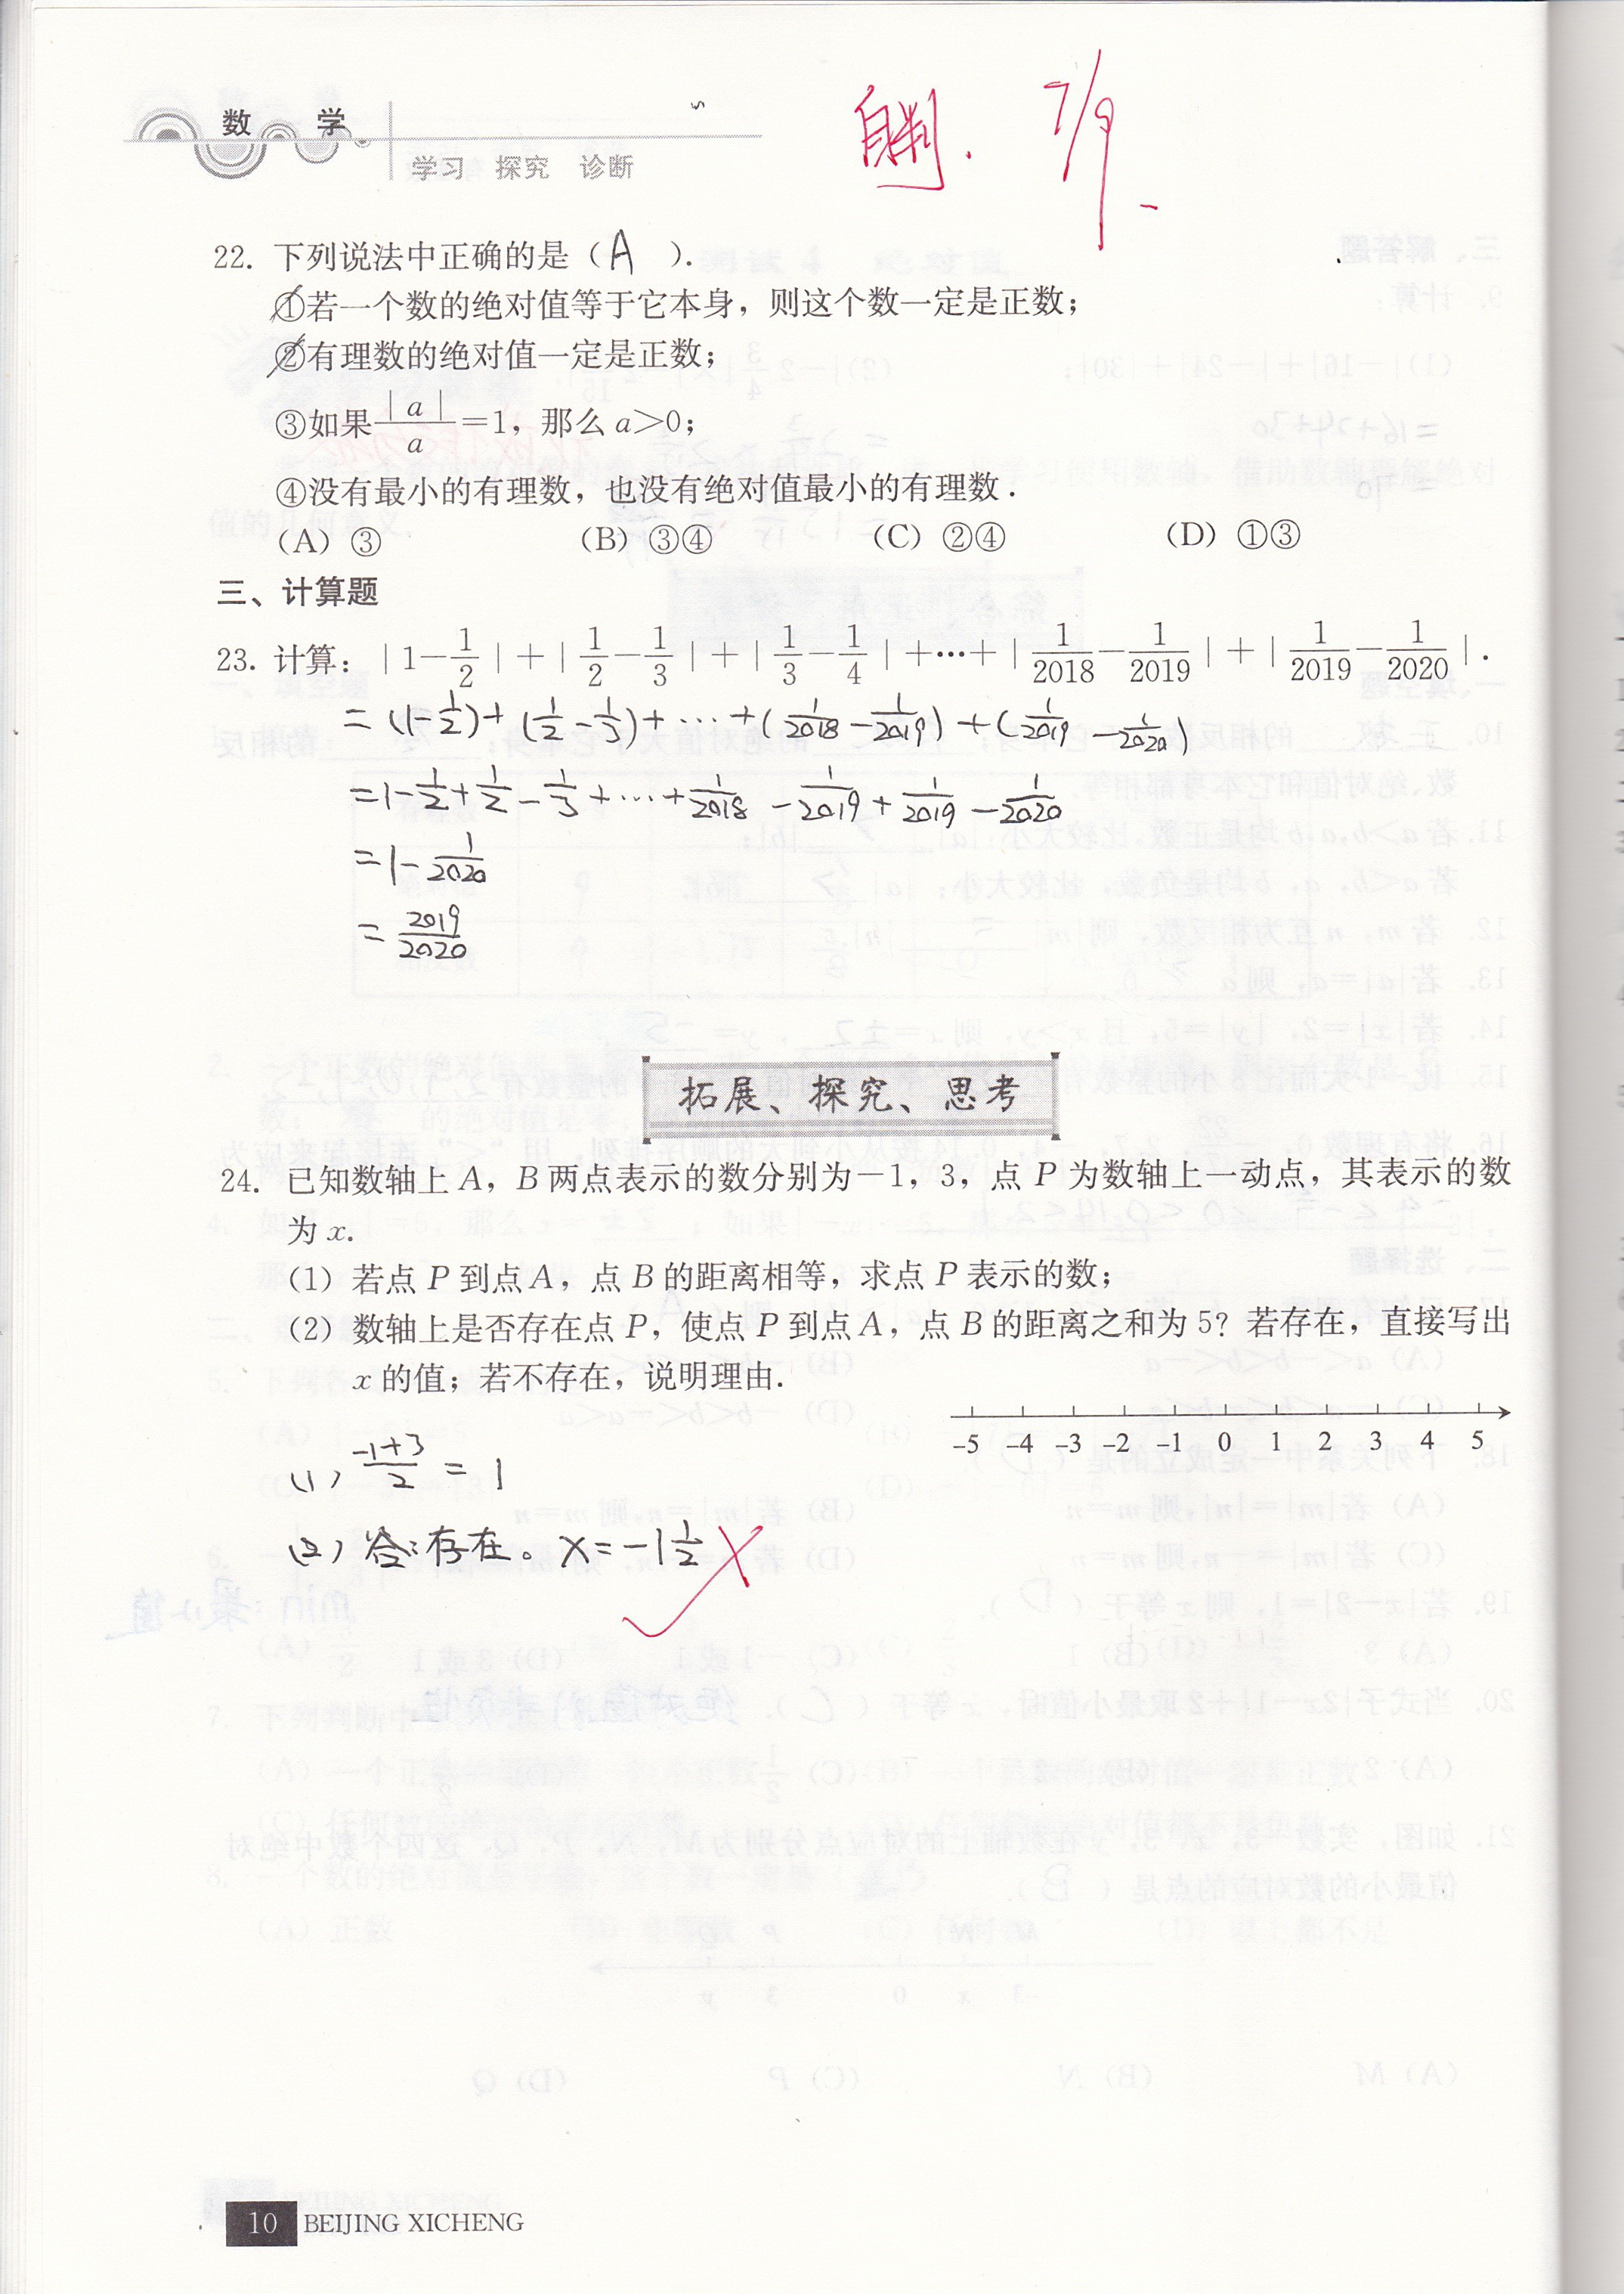 数 学
学习 探究 诊断
自判. 7/9
22. 下列说法中正确的是(A).
①若一个数的绝对值等于它本身,则这个数一定是正数;
②有理数的绝对值一定是正数;
③如果|a|/a=1,那么a>0;
④没有最小的有理数,也没有绝对值最小的有理数.
(A) ③ (B) ③④ (C) ②④ (D) ①③
三、计算题
23. 计算:|1-1/2|+|1/2-1/3|+|1/3-1/4|+…+|1/2018-1/2019|+|1/2019-1/2020|.
=(1-1/2)+(1/2-1/3)+…+(1/2018-1/2019)+(1/2019-1/2020)
=1-1/2+1/2-1/3+…+1/2018-1/2019+1/2019-1/2020
=1-1/2020
=2019/2020
拓展、探究、思考
24. 已知数轴上A,B两点表示的数分别为-1,3,点P为数轴上一动点,其表示的数
为x.
(1) 若点P到点A,点B的距离相等,求点P表示的数;
(2) 数轴上是否存在点P,使点P到点A,点B的距离之和为5?若存在,直接写出
x的值;若不存在,说明理由.
-5 -4 -3 -2 -1 0 1 2 3 4 5
(1) (-1+3)/2=1
(2) 答:存在。x=-1 1/2
10 BEIJING XICHENG